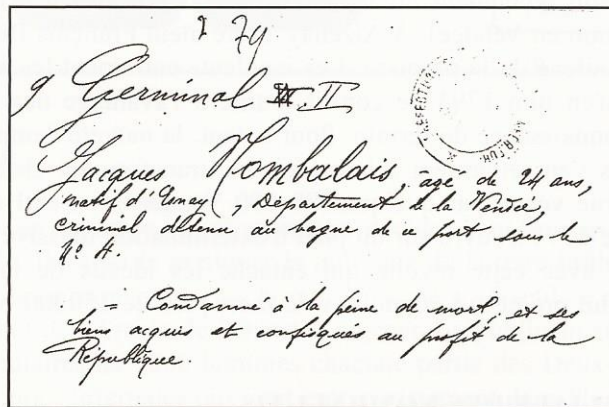 I 79
9 Germinal II
Jacques Mombalais, âgé de 24 ans,
natif d'Esnay, Département de la Vendée,
criminel détenu au bagne de ce port sous le
N° 4.
- Condamné à la peine de mort, et ses
biens acquis et confisqués au profit de la
République.